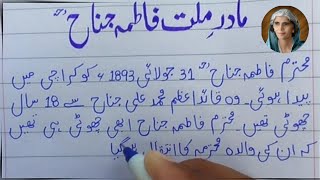 مادرِ ملت فاطمہ جناحؒ
محترم فاطمہ جناحؒ 31 جولائی 1893ء کو کراچی میں
پیدا ہوئی۔ وہ قائداعظم محمد علی جناح سے 18 سال
چھوٹی تھیں۔ محترم فاطمہ جناح ابھی چھوٹی ہی تھیں
کہ ان کی والدہ محترمہ کا انتقال ہو گیا